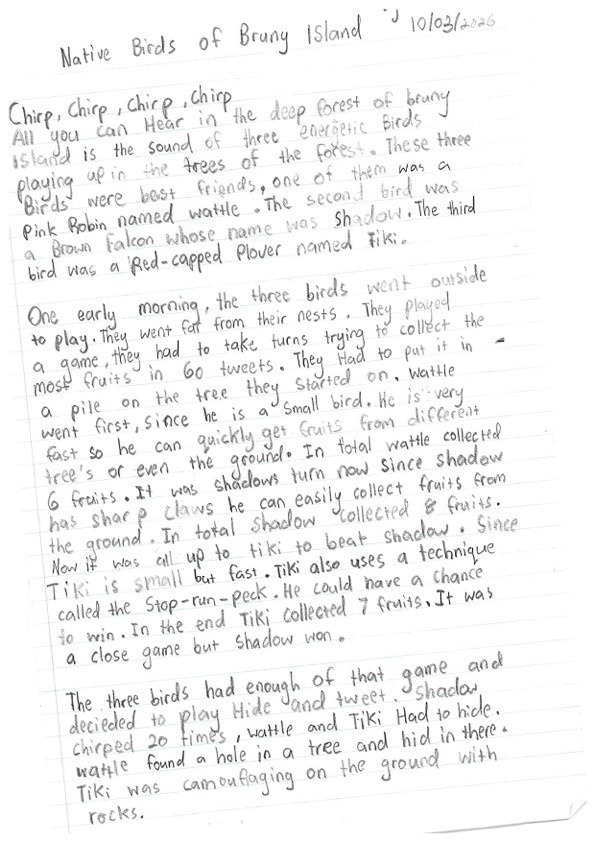 Native Birds of Bruny Island 10/03/2026
Chirp, Chirp, Chirp, Chirp
All you can Hear in the deep forest of bruny
Island is the sound of three energetic Birds
playing up in the trees of the forest. These three
Birds were best friends, one of them was a
Pink Robin named wattle. The second bird was
a Brown Falcon whose name was Shadow. The third
bird was a Red-capped Plover named Tiki.
One early morning, the three birds went outside
to play. They went far from their nests. They played
a game, they had to take turns trying to collect the
most fruits in 60 tweets. They Had to put it in -
a pile on the tree they started on. Wattle
went first, since he is a small bird. He is very
fast so he can quickly get fruits from different
tree's or even the ground. In total wattle collected
6 fruits. It was shadows turn now since shadow
has sharp claws he can easily collect fruits from
the ground. In total Shadow collected 8 fruits.
Now it was all up to tiki to beat shadow. Since
Tiki is small but fast. Tiki also uses a technique
called the Stop-run-peck. He could have a chance
to win. In the end Tiki collected 7 fruits. It was
a close game but Shadow won.
The three birds had enough of that game and
decieded to play Hide and tweet. Shadow
chirped 20 times, wattle and Tiki Had to hide.
wattle found a hole in a tree and hid in there.
Tiki was camouflaging on the ground with
rocks.